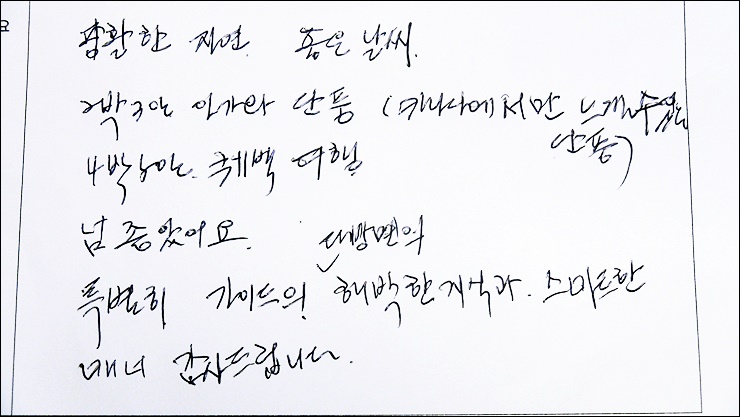 요
광활한 자연. 좋은 날씨.
2박3일 인가와 단풍 (캐나다에서만 느낄 수 있는
단풍)
4박5일 퀘백 여행
넘 좋았어요.
특별히 가이드의 다방면의 해박한 지식과 스마트한
매너 감사드립니다.